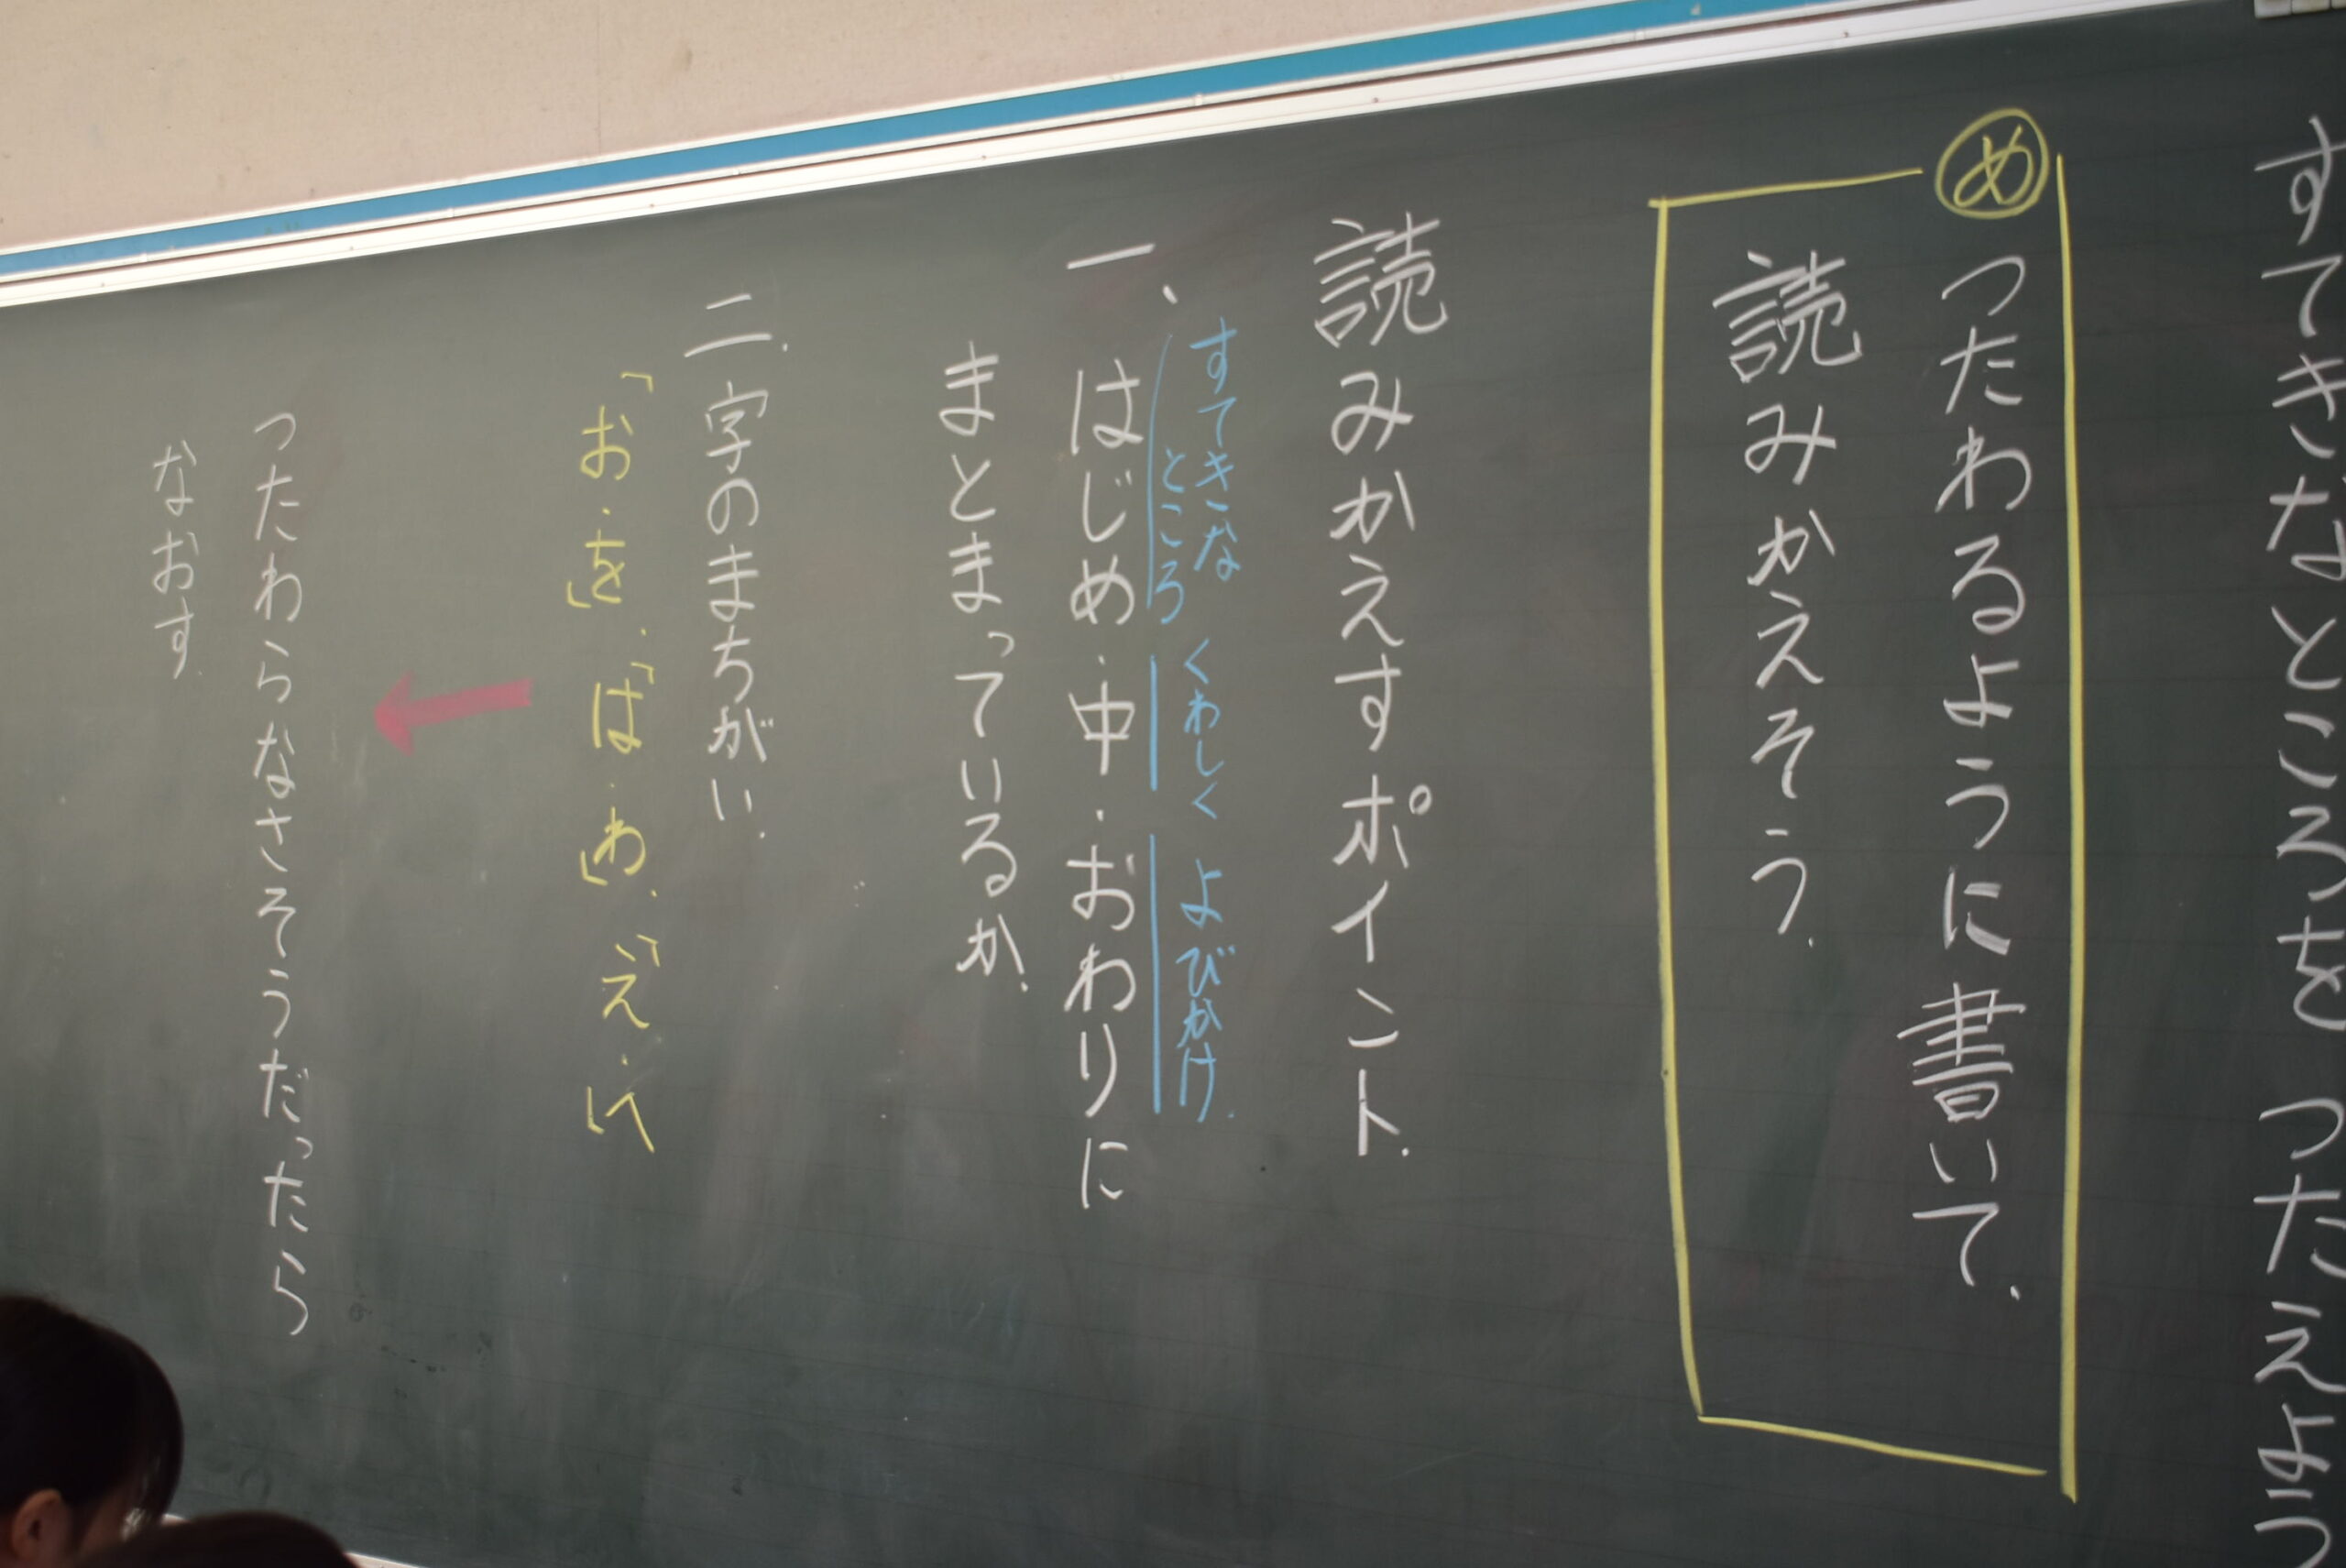 すてきなところを つたえよう
め つたわるように書いて、
読みかえそう。
読みかえすポイント。
すてきな
ところ
くわしく
よびかけ。
一、はじめ・中・おわりに
まとまっているか。
二、字のまちがい。
「お・を」、「は・わ」、「え・へ」
つたわらなさそうだったら
なおす。